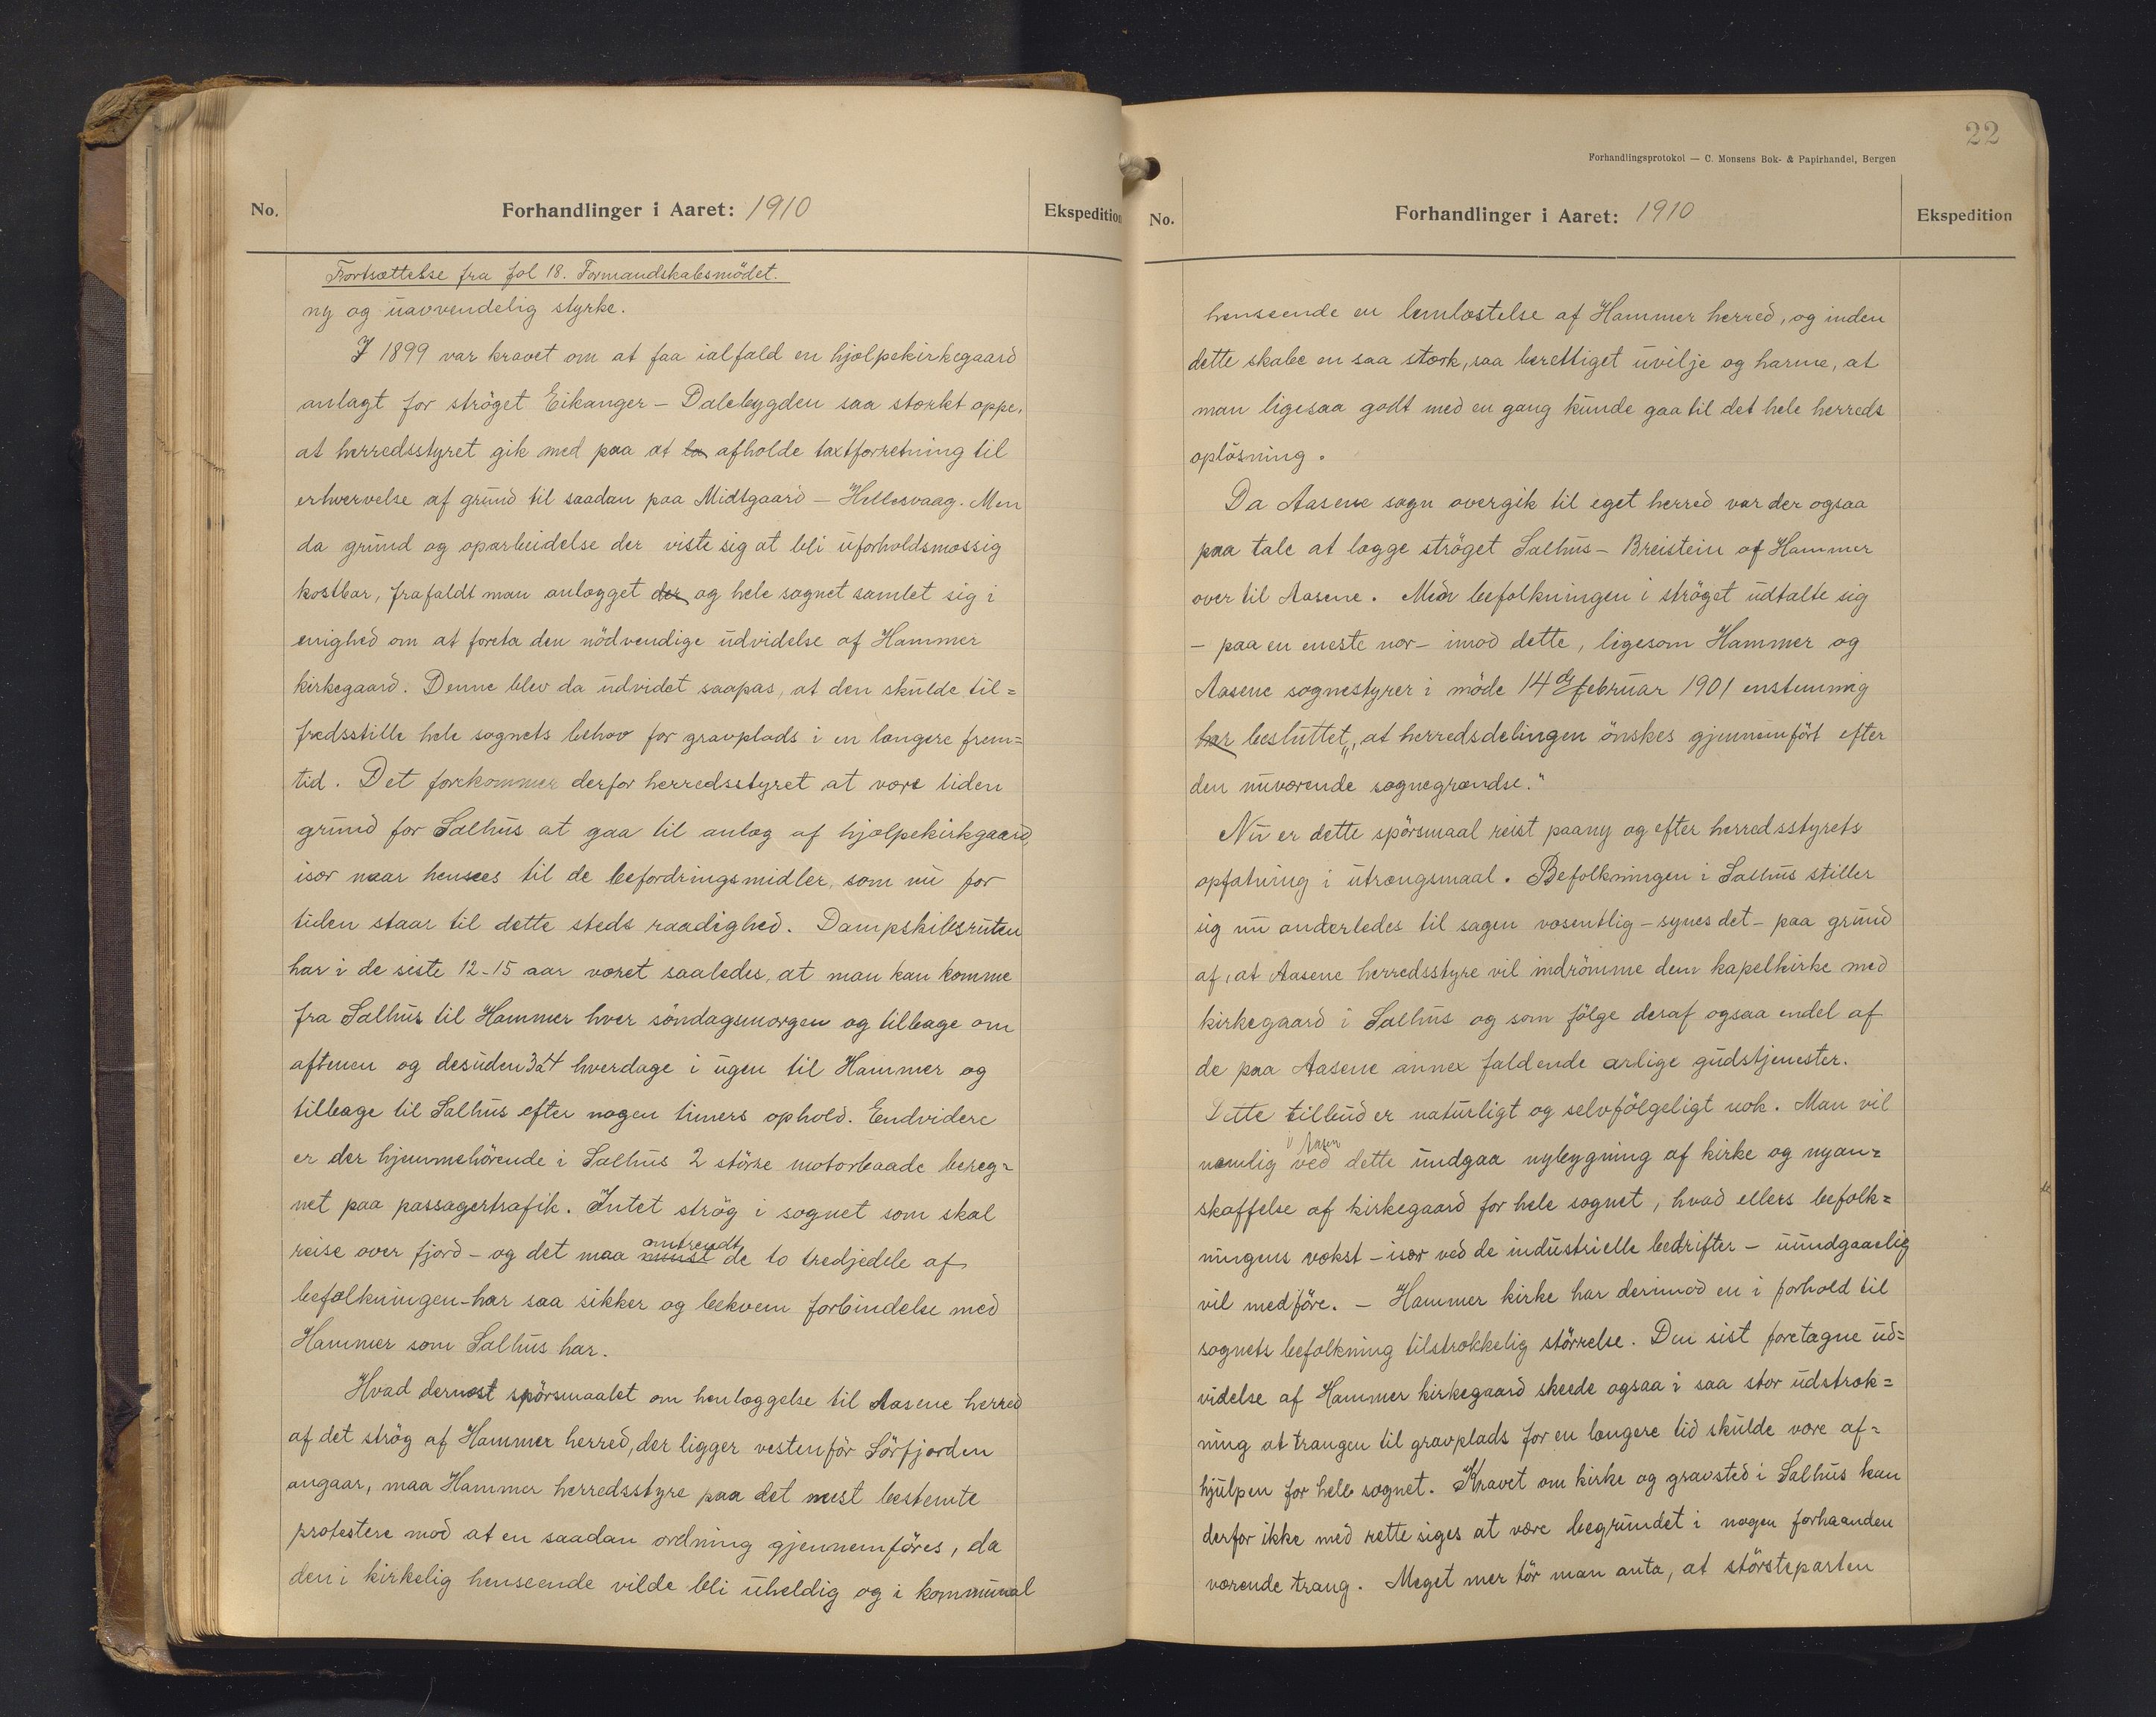 No.
Forhandlinger i Aaret: 1910
Ekspedition
Fortsættelse fra fol 18. Formandskabsmödet.
ny og uavvendelig styrke.
I 1899 var kravet om at faa ialfald en hjælpekirkegaard
anlagt for ströget Eikanger - Dalebygden saa stærkt oppe,
at herredsstyret gik med paa at la afholde taxtforretning til
erhvervelse af grund til saadan paa Midtgaard - Hellesvaag. Men
da grund og oparbeidelse der viste sig at bli uforholdsmæssig
kostbar, frafaldt man anlægget der og hele sognet samlet sig i
enighed om at foreta den nödvendige udvidelse af Hammer
kirkegaard. Denne blev da udvidet saapas, at den skulde til=
fredsstille hele sognets behov for gravplads i en længere frem=
tid. Det forekommer derfor herredsstyret at være liden
grund for Salhus at gaa til anlæg af hjælpekirkgaard,
især naar hensees til de befordringsmidler, som nu for
tiden staar til dette steds raadighed. Dampskibsruten
har i de siste 12-15 aar været saaledes, at man kan komme
fra Salhus til Hammer hver söndagsmorgen og tilbage om
aftenen og desuden 3 a 4 hverdage i ugen til Hammer og
tilbage til Salhus efter nogen timers ophold. Endvidere
er der hjemmehörende i Salhus 2 större motorbaade bereg=
net paa passagertrafik. Intet strög i sognet som skal
omtrendt
reise over fjord - og det maa de to tredjedele af
befolkningen - har saa sikker og bekvem forbindelse med
Hammer som Salhus har.
Hvad dernæst spörsmaalet om henlæggelse til Aasene herred
af det strög af Hammer herred, der ligger vestenför Sörfjorden
angaar, maa Hammer herredsstyre paa det mest bestemte
protestere mod at en saadan ordning gjennemföres, da
den i kirkelig henseende vilde bli uheldig og i kommunal
22
Forhandlingsprotokol — C. Monsens Bok- & Papirhandel, Bergen
No.
Forhandlinger i Aaret: 1910
Ekspedition
henseende en lemlæstelse af Hammer herred, og inden
dette skabe en saa stærk, saa berettiget uvilje og harme, at
man ligesaa godt med en gang kunde gaa til det hele herreds
oplösning.
Da Aasene sogn overgik til eget herred var der ogsaa
paa tale at lægge ströget Salhus - Breistein af Hammer
over til Aasene. Men befolkningen i ströget udtalte sig
- paa en eneste nær - imod dette, ligesom Hammer og
Aasene sognestyrer i möde 14de februar 1901 enstemmig
har besluttet, „at herredsdelingen önskes gjennemfört efter
den nuværende sognegrændse."
Nu er dette spörsmaal reist paany og efter herredsstyrets
opfatning i utrængsmaal. Befolkningen i Salhus stiller
sig nu anderledes til sagen væsentlig - synes det - paa grund
af, at Aasene herredsstyre vil indrömme dem kapelkirke med
kirkegaard i Salhus og som fölge deraf ogsaa endel af
de paa Aasene annex faldende årlige gudstjenester.
Dette tilbud er naturligt og selvfölgeligt nok. Man vil
i Aasen
nemlig ved dette undgaa nybygning af kirke og nyan=
skaffelse af kirkegaard for hele sognet, hvad ellers befolk=
ningens vækst - især ved de industrielle bedrifter - uundgaaelig
vil medföre. - Hammer kirke har derimod en i forhold til
sognets befolkning tilstrækkelig störrelse. Den sist foretagne ud=
videlse af Hammer kirkegaard skeede ogsaa i saa stor udstræk=
ning at trangen til gravplads for en længere tid skulde være af=
hjulpen for hele sognet. Kravet om kirke og gravsted i Salhus kan
derfor ikke med rette siges at være begrundet i nogen forhaanden
værende trang. Meget mer tör man anta, at störsteparten